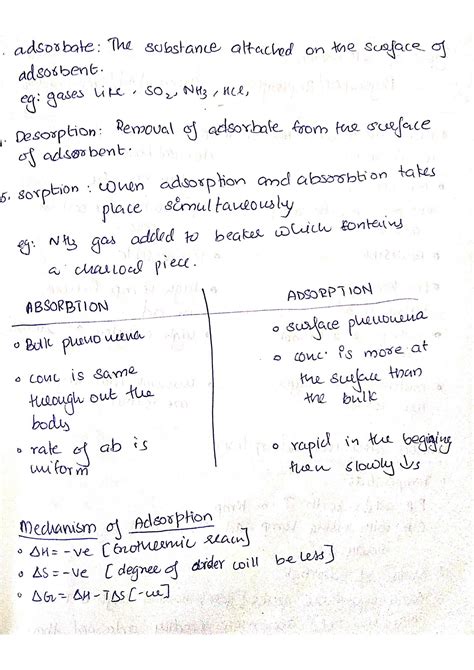 . adsorbate: The substance attached on the surface of
adsorbent.
eg: gases like, SO2, NH3, HCl,
. Desorption: Removal of adsorbate from the surface
of adsorbent.
5. sorption: when adsorption and absorbtion takes
place simultaneously
eg: NH3 gas added to beaker which contains
a charcoal piece.
ABSORBTION
ADSORPTION
o Bulk phenomena
o conc is same
through out the
body
o rate of ab is
uniform
o surface phenomena
o conc. is more at
the surface than
the bulk
o rapid in the beggiging
then slowly ↓s
Mechanism of Adsorption
o ΔH = -ve [Exothermic reacn]
o ΔS = -ve [degree of disorder will be less]
o ΔG = ΔH - TΔS [-ve]